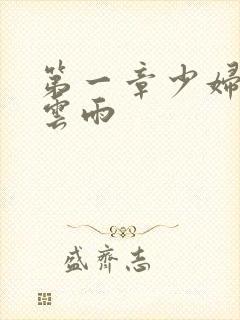 第一章少婦
雲雨
盛齊志